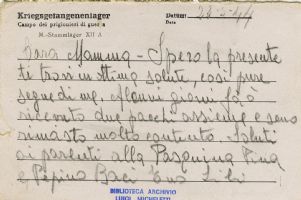 Kriegsgefangenenlager
Campo dei prigionieri di guerra
M.-Stammlager XII A
Datum:
Data
Cara Mamma - Spero la presente
ti trovi in ottima salute, così pure
segue di me. Alcuni giorni fà ò
ricevuto due pacchi assieme e sono
rimasto molto contento. Saluti
ai parenti alla Pasquina Pina
e Pepino Baci
BIBLIOTECA ARCHIVIO
LUIGI MICHELETTI